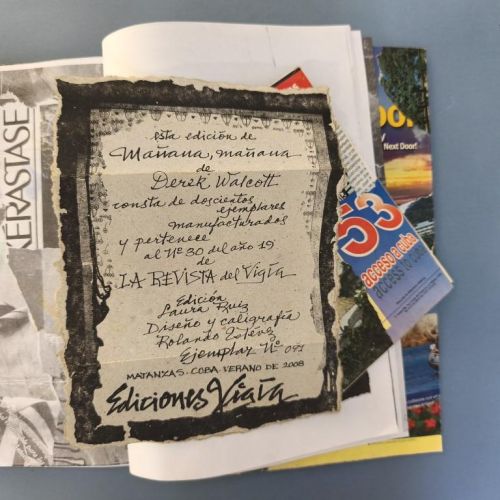 KERASTASE
esta edición de
Mañana, mañana
de
Derek Walcott
consta de doscientos
ejemplares
manufacturados
y pertenece
al Nº 30 del año 19
de
LA REVISTA del Vigía
Edición
Laura Ruiz
Diseño y caligrafía
Rolando Estévez
Ejemplar Nº 091
MATANZAS. CUBA. VERANO DE 2008
Ediciones Vigía
Next Door!
53
acceso a cuba
access to